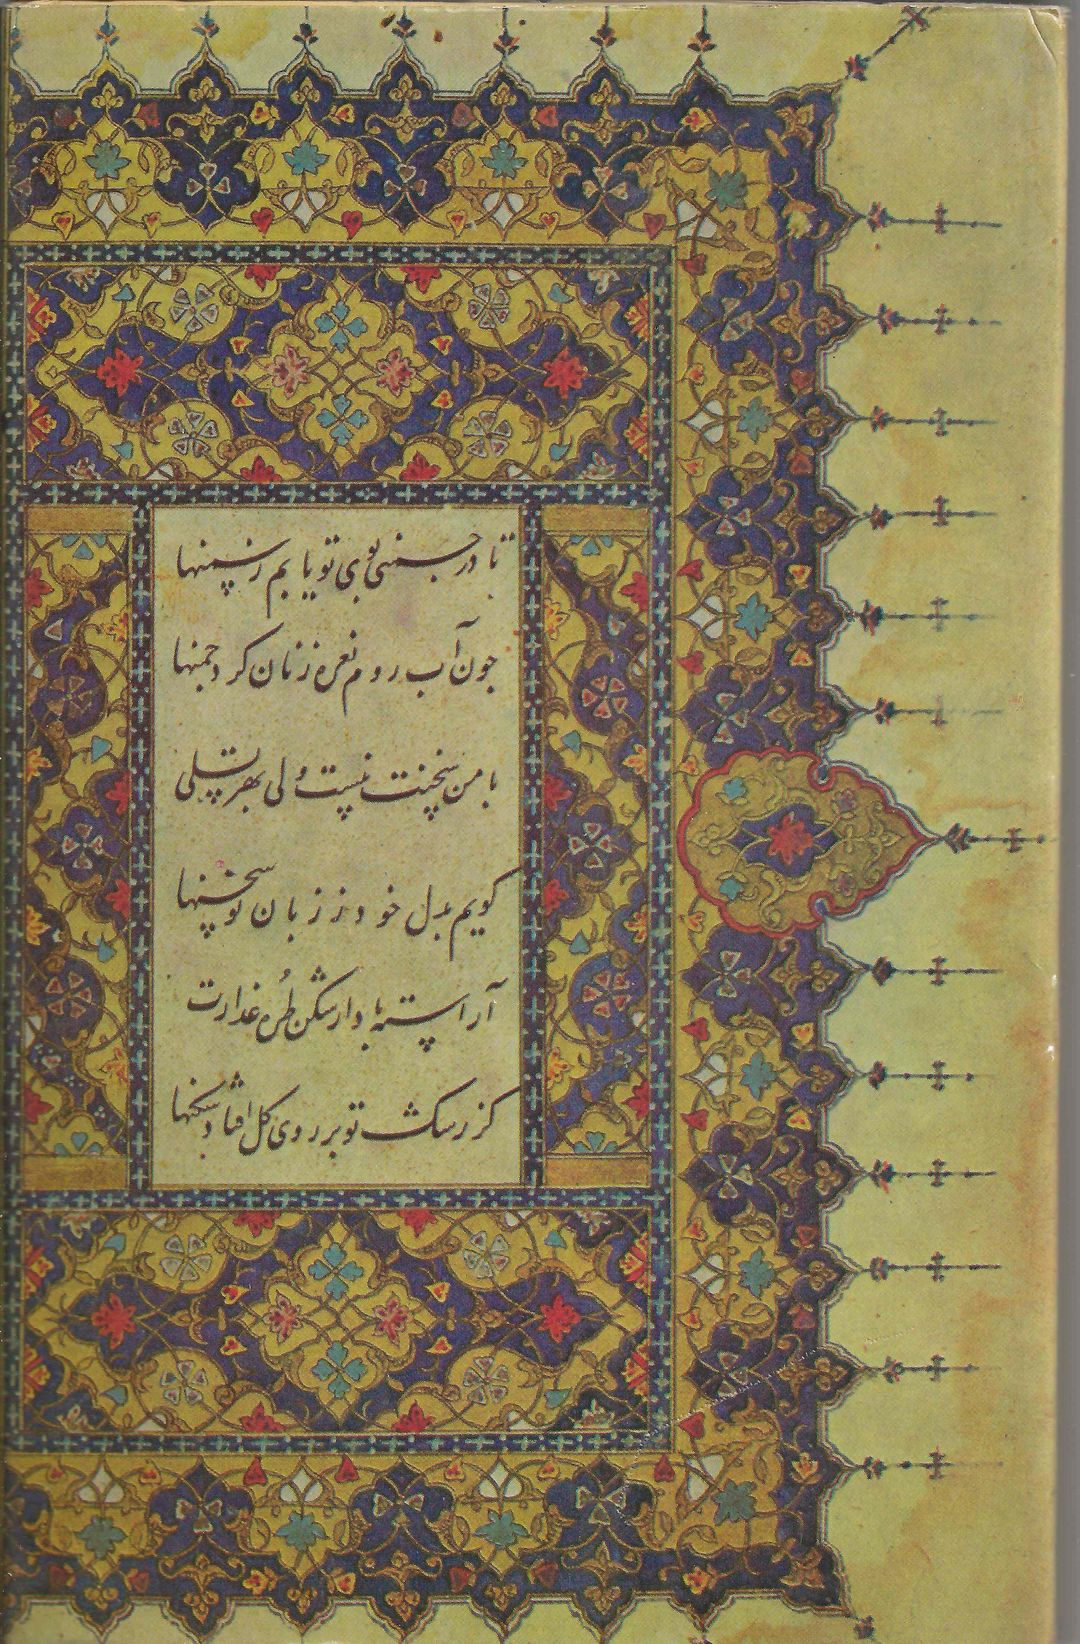 تا در چمنی بوی تو یابم ز سمنها
چون آب روم نعره زنان گرد چمنها
با من سخنت نیست ولی بهر تسلی
گویم بدل خود ز زبان تو سخنها
آراسته بادا ز شکن طُره عذارت
کز رشک تو بر روی گل افتاد شکنها